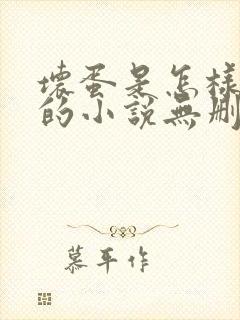 壞蛋是怎樣
的小說無刪
慕平作